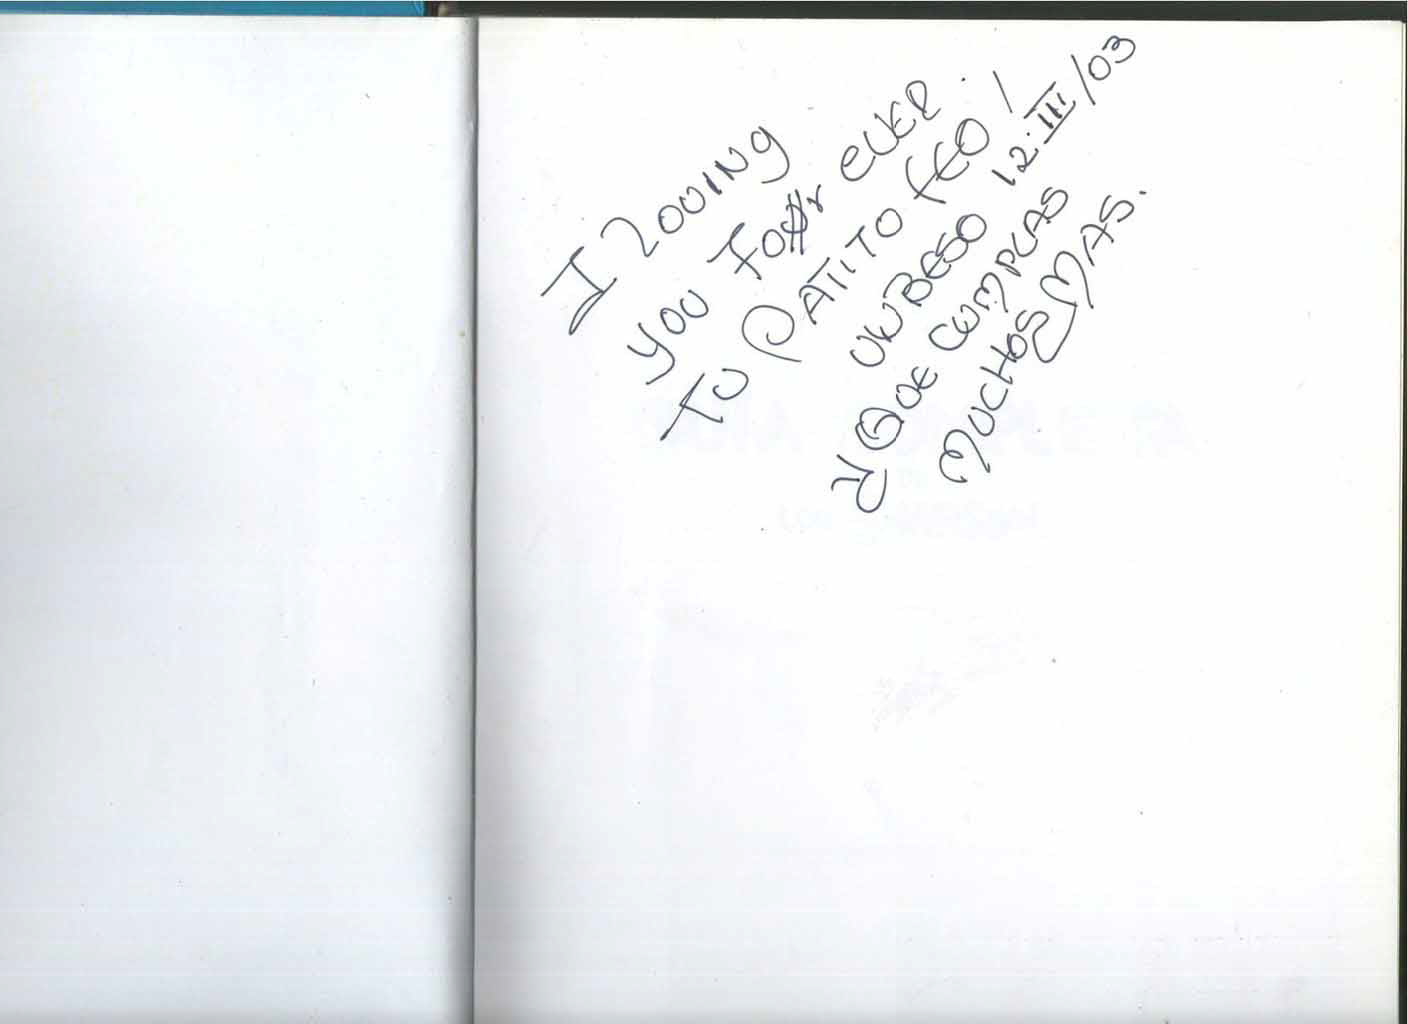 I loving
you For ever.
TU PATITO FEO!
UN BESO 12·III/03
Y QUE CUMPLAS
MUCHOS MAS.